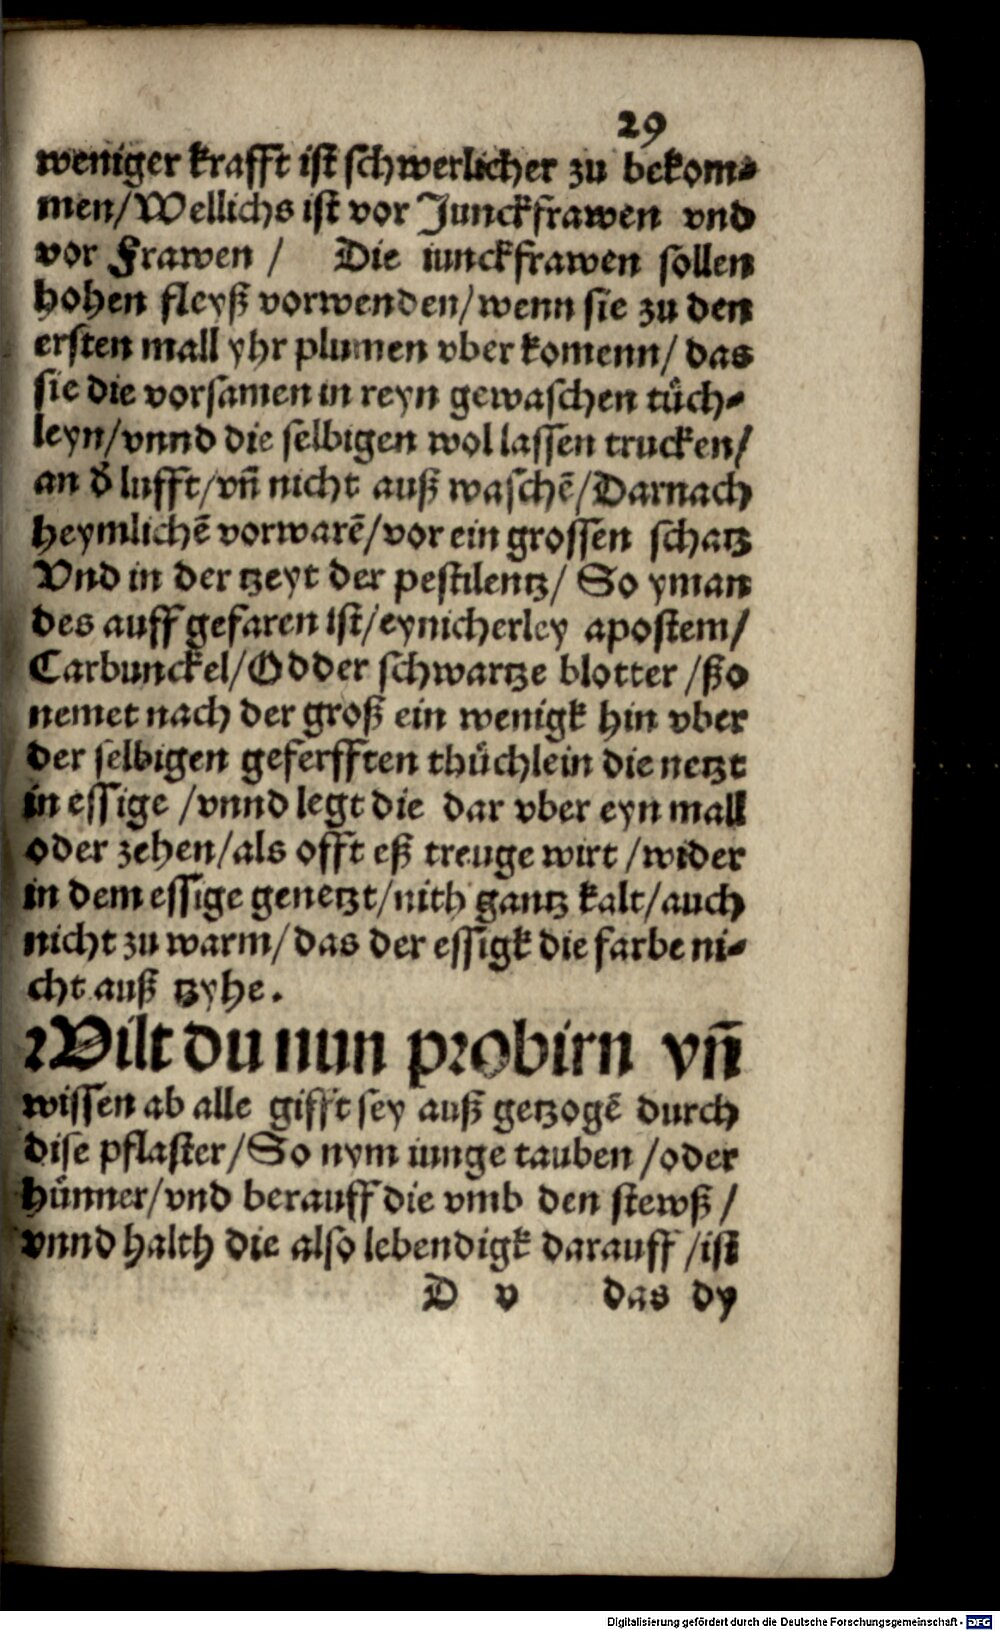 29
weniger krafft ist schwerlicher zu bekom⸗
men/Wellichs ist vor Junckfrawen vnd
vor Frawen / Die iunckfrawen sollen
hohen fleyß vorwenden/wenn sie zu den
ersten mall yhr plumen vber komenn/das
sie die vorsamen in reyn gewaschen tůch⸗
leyn/vnnd die selbigen wol lassen trucken/
an d̕ lufft/vñ nicht auß waschē/Darnach
heymlichē vorwarē/vor ein grossen schatz
Vnd in der tzeyt der pestilentz/ So yman
des auff gefaren ist/eynicherley apostem/
Carbunckel/Odder schwartze blotter /ßo
nemet nach der groß ein wenigk hin vber
der selbigen geferfften thůchlein die netzt
in essige /vnnd legt die dar vber eyn mall
oder zehen/als offt eß treuge wirt /wider
in dem essige genetzt/nith gantz kalt/auch
nicht zu warm/das der essigk die farbe ni⸗
cht auß tzyhe.
Wilt du nun probirn vñ
wissen ab alle gifft sey auß getzogē durch
dise pflaster/So nym iunge tauben /oder
hůnner/vnd berauff die vmb den stewß /
vnnd halth die also lebendigk darauff /ist
D v das dy
Digitalisierung gefördert durch die Deutsche Forschungsgemeinschaft - DFG